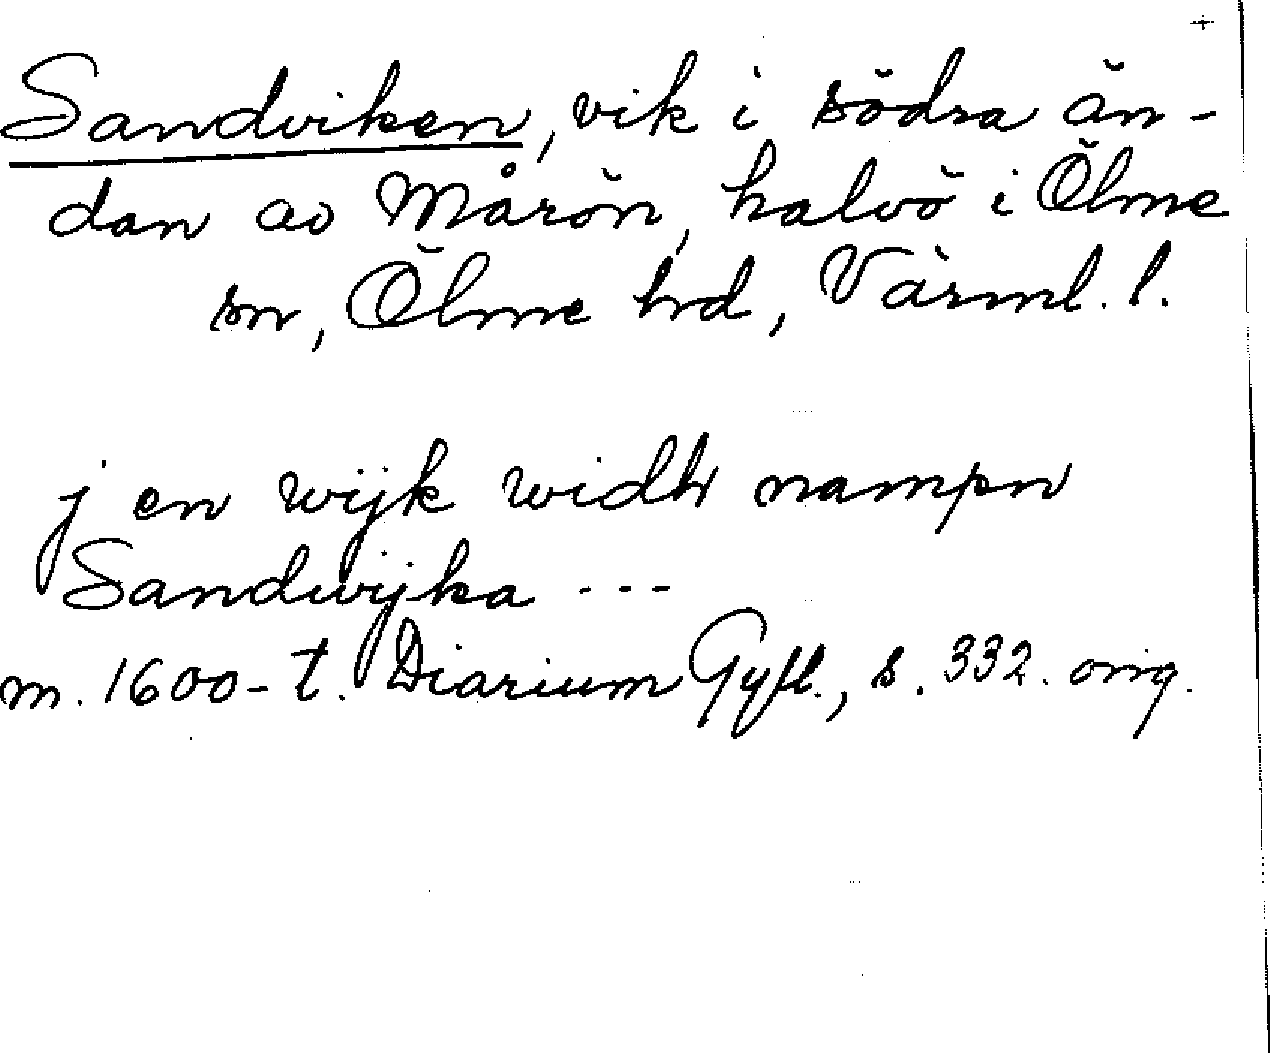 +
Sandviken, vik i södra än-
dan av Mårön, halvö i Ölme
sn, Ölme hd, Värml. l.
j en wijk widh nampn
Sandwijka ---
m. 1600-t. Diarium Gyll., s. 332. orig.